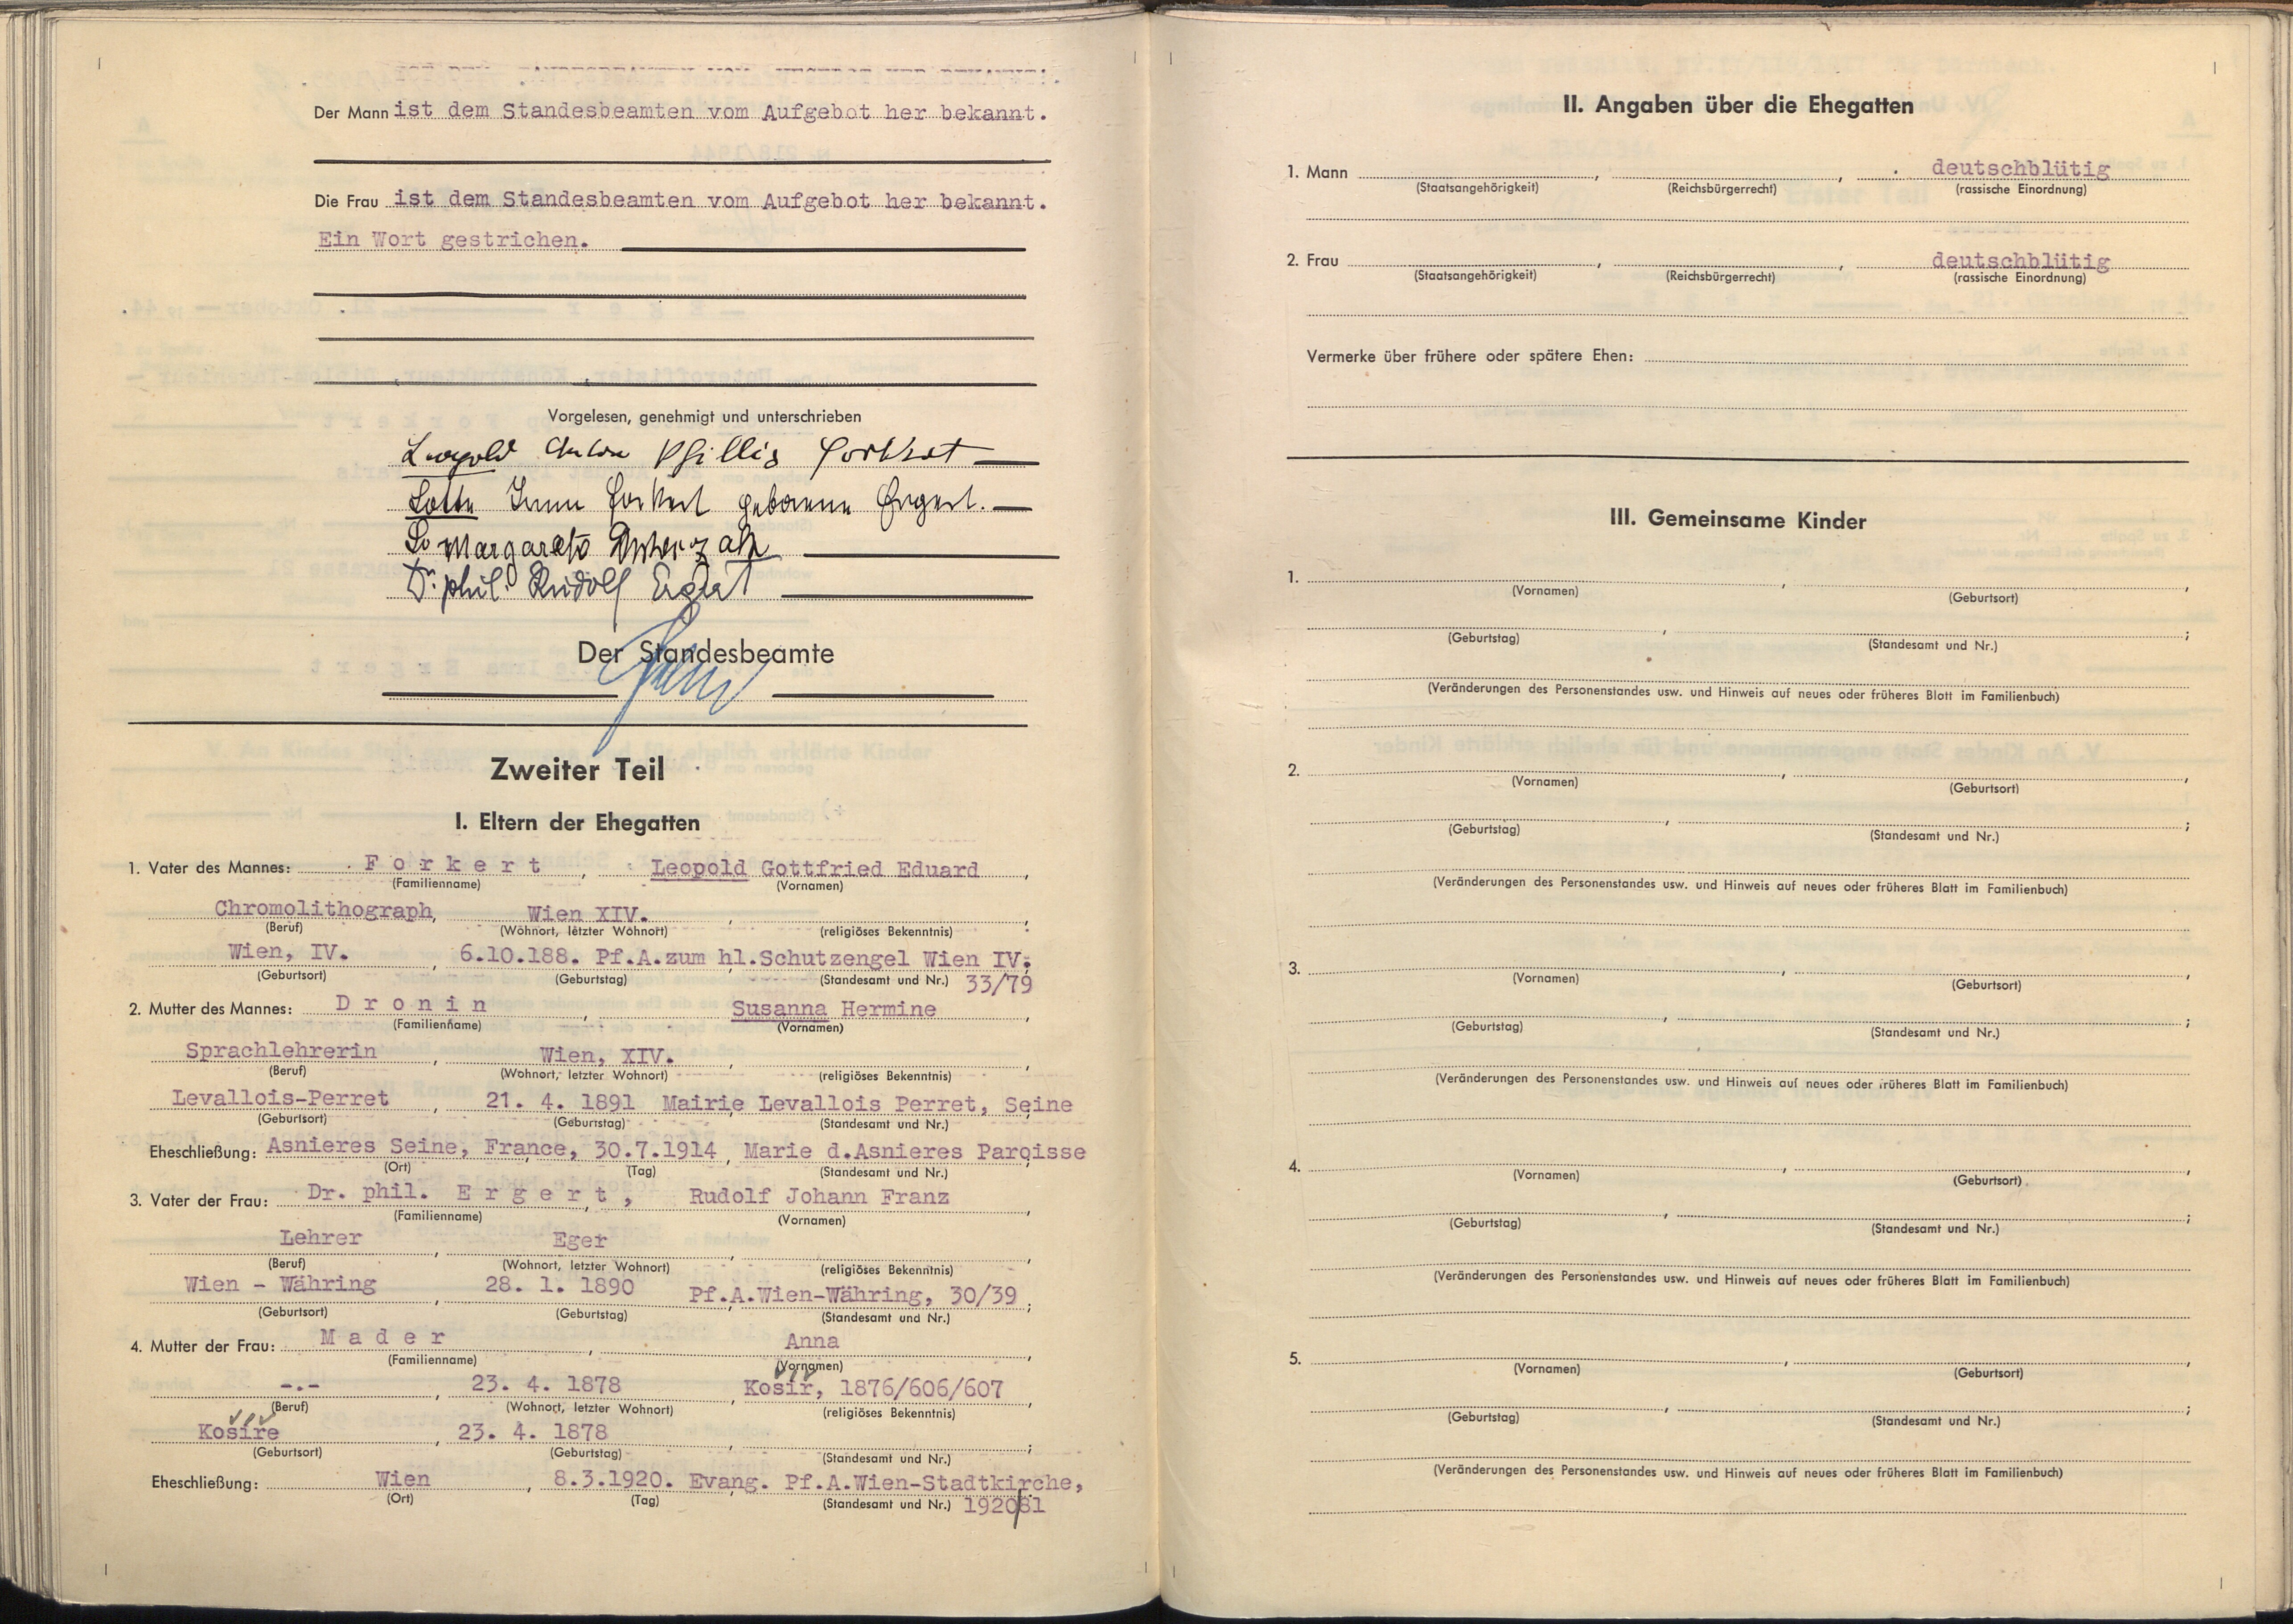 Der Mann ist dem Standesbeamten vom Aufgebot her bekannt.
Die Frau ist dem Standesbeamten vom Aufgebot her bekannt.
Ein Wort gestrichen.
Vorgelesen, genehmigt und unterschrieben
Leopold Anton Phillip Forkert
Lotte Irma Forkert geborene Ergert.
Margarete
Dr. phil. Rudolf Ergert
Der Standesbeamte
Zweiter Teil
I. Eltern der Ehegatten
1. Vater des Mannes: F o r k e r t , Leopold Gottfried Eduard ,
(Familienname) (Vornamen)
Chromolithograph, Wien XIV. , ;
(Beruf) (Wohnort, letzter Wohnort) (religiöses Bekenntnis)
Wien, IV. , 6.10.188. Pf.A.zum hl.Schutzengel Wien IV;
(Geburtsort) (Geburtstag) (Standesamt und Nr.) 33/79
2. Mutter des Mannes: D r o n i n , Susanna Hermine ,
(Familienname) (Vornamen)
Sprachlehrerin , Wien, XIV. , ,
(Beruf) (Wohnort, letzter Wohnort) (religiöses Bekenntnis)
Levallois-Perret , 21. 4. 1891 Mairie Levallois Perret, Seine
(Geburtsort) (Geburtstag) (Standesamt und Nr.)
Eheschließung: Asnieres Seine, France, 30.7.1914, Marie d.Asnieres Paroisse
(Ort) (Tag) (Standesamt und Nr.)
3. Vater der Frau: Dr. phil. E r g e r t , Rudolf Johann Franz ,
(Familienname) (Vornamen)
Lehrer , Eger , ,
(Beruf) (Wohnort, letzter Wohnort) (religiöses Bekenntnis)
Wien - Währing , 28. 1. 1890 Pf.A.Wien-Währing, 30/39 ;
(Geburtsort) (Geburtstag) (Standesamt und Nr.)
4. Mutter der Frau: M a d e r , Anna ,
(Familienname) (Vornamen)
-.- , 23. 4. 1878 , Kosir, 1876/606/607 ,
(Beruf) (Wohnort, letzter Wohnort) (religiöses Bekenntnis)
Kosire , 23. 4. 1878 , ;
(Geburtsort) (Geburtstag) (Standesamt und Nr.)
Eheschließung: Wien , 8.3.1920. Evang. Pf.A.Wien-Stadtkirche,
(Ort) (Tag) (Standesamt und Nr.) 1920/81
II. Angaben über die Ehegatten
1. Mann , , deutschblütig
(Staatsangehörigkeit) (Reichsbürgerrecht) (rassische Einordnung)
2. Frau , , deutschblütig
(Staatsangehörigkeit) (Reichsbürgerrecht) (rassische Einordnung)
Vermerke über frühere oder spätere Ehen:
III. Gemeinsame Kinder
1. , ,
(Vornamen) (Geburtsort)
, ;
(Geburtstag) (Standesamt und Nr.)
(Veränderungen des Personenstandes usw. und Hinweis auf neues oder früheres Blatt im Familienbuch)
2. , ,
(Vornamen) (Geburtsort)
, ;
(Geburtstag) (Standesamt und Nr.)
(Veränderungen des Personenstandes usw. und Hinweis auf neues oder früheres Blatt im Familienbuch)
3. , ,
(Vornamen) (Geburtsort)
, ;
(Geburtstag) (Standesamt und Nr.)
(Veränderungen des Personenstandes usw. und Hinweis auf neues oder früheres Blatt im Familienbuch)
4. , ,
(Vornamen) (Geburtsort)
, ;
(Geburtstag) (Standesamt und Nr.)
(Veränderungen des Personenstandes usw. und Hinweis auf neues oder früheres Blatt im Familienbuch)
5. , ,
(Vornamen) (Geburtsort)
, ;
(Geburtstag) (Standesamt und Nr.)
(Veränderungen des Personenstandes usw. und Hinweis auf neues oder früheres Blatt im Familienbuch)